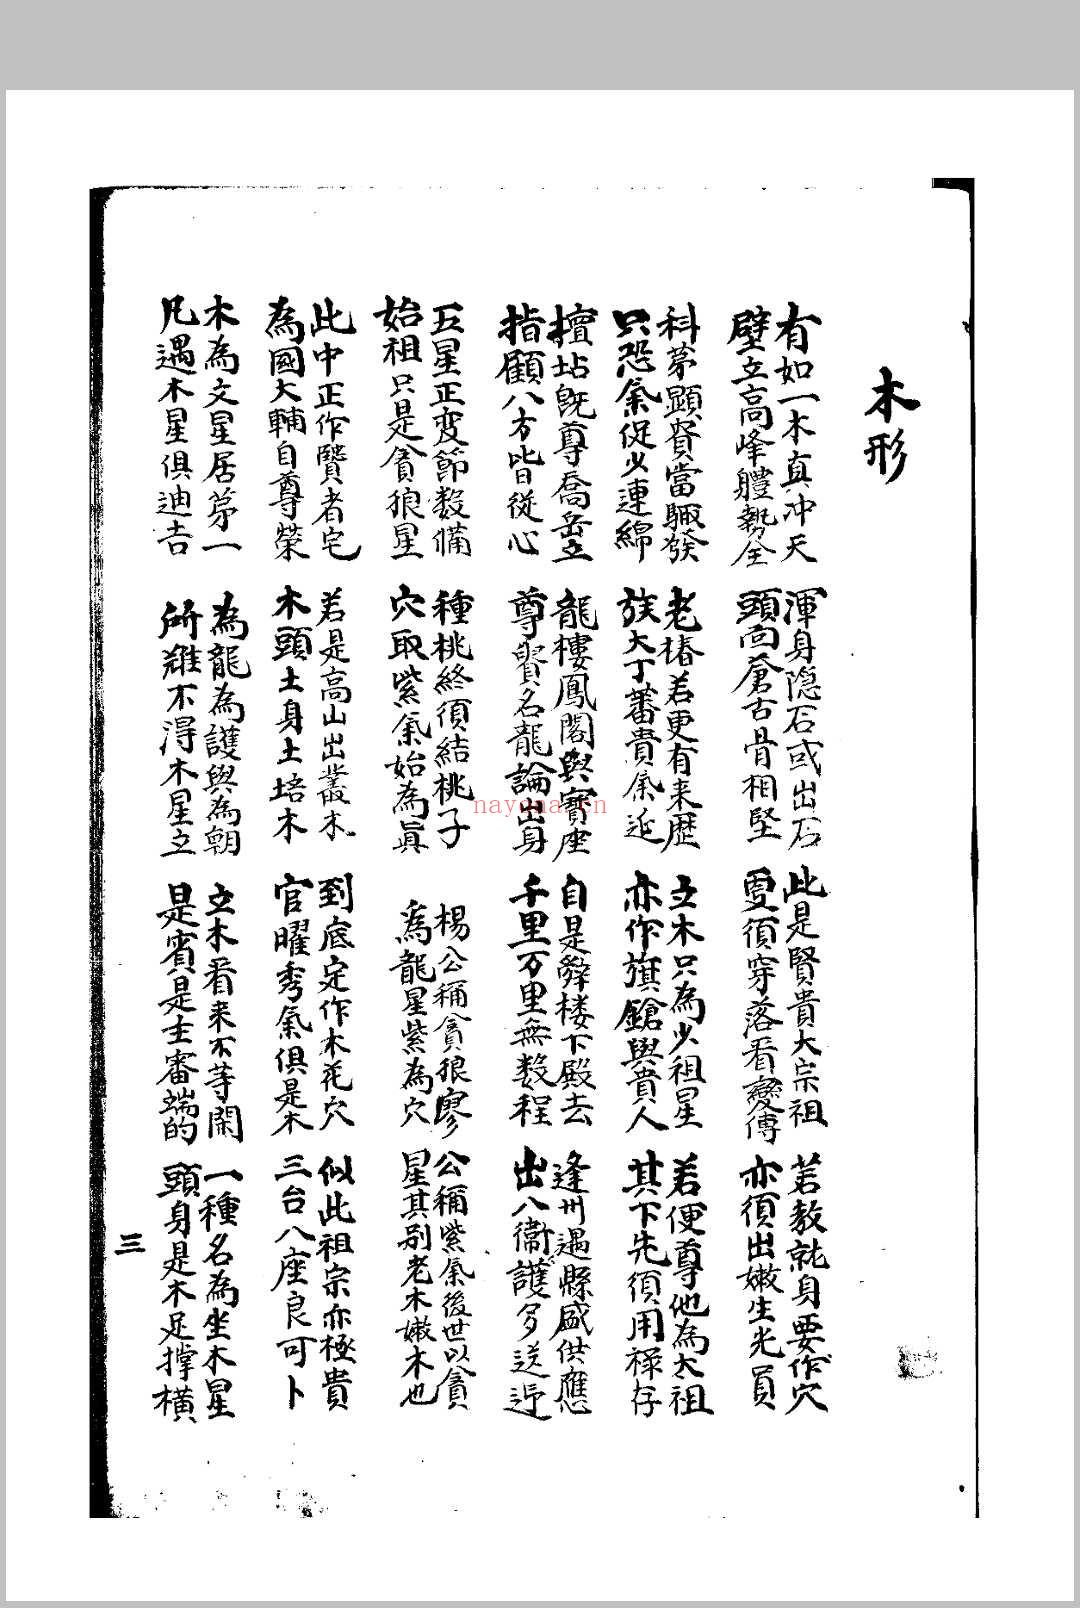 木形
有如一木真冲天
壁立高峰軆勢全
渾身隐石或出石
頭向蒼古骨相堅
此是賢貴大宗祖
更須穿落看變傳
若教就身要作穴
亦須出嫩生光員
科苐顕貴當驟發
只恐氣促少連綿
老椿若更有来歴
族大丁蕃貴氣延
立木只為少祖星
亦作旗鎗與貴人
若便尊他為太祖
其下先須用禄存
擅坫既尊喬岳立
指顧八方皆従心
龍樓鳳閣與寳座
尊貴名龍論出身
自是辭楼下殿去
千里万里無数程
逢州遇縣盛供應
出入衛護多送迎
五星正变節数備
始祖只是貪狼星
種桃終須結桃子
穴取紫氣始為眞
楊公稱貪狼廖公稱紫氣後世以貪
為龍星紫為穴星其别老木嫩木也
此中正作賢者宅
為國大輔自尊榮
若是高山出叢木
木頭土身土培木
到底定作木花穴
官曜秀氣俱是木
似此祖宗亦極貴
三台八座良可卜
木為文星居苐一
凡遇木星俱迪吉
為龍為護與為朝
所難不淂木星立
立木看来不等閑
是賓是主審端的
一種名為坐木星
頭身是木足撑橫
三
nayona.cn